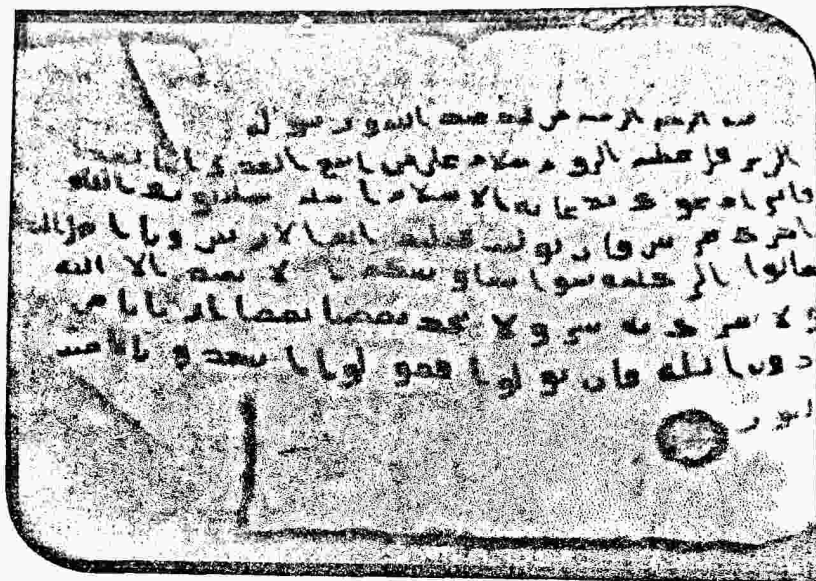 الرحمن الرحيم من محمد عبد الله ورسوله
الى هرقل عظيم الروم سلام على من اتبع الهدى اما بعد
فانى ادعوك بدعاية الاسلام اسلم تسلم يوتك الله
اجرك مرتين فان توليت فعليك اثم الاريسين ويا اهل
تعالوا الى كلمة سوا بيننا وبينكم ا لا نعبد الا الله
ولا نشرك به شيا ولا يتخذ بعضنا بعضا اربابا من
دون الله فان تولوا فقولوا اشهدوا بانا